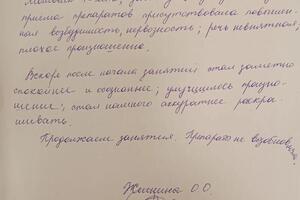 приема препаратов присутствовала повышен-
ная возбудимость, нервозность; речь невнятная,
плохое произношение.
Вскоре после начала занятий, стал заметно
спокойнее и социальнее; улучшилось произно-
шение; стал намного аккуратнее раскра-
шивать.
Продолжаем заниматься. Препарат не возобновл
О.О.